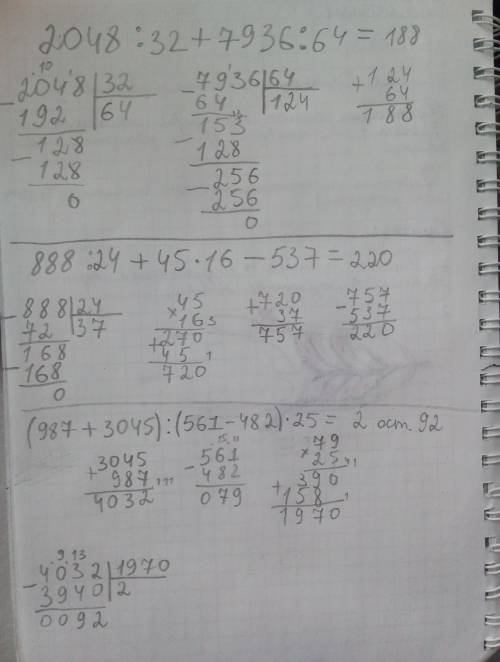 2048 : 32 + 7936 : 64 = 188
10
2048 | 32
192 | 64
128
128
0
7936 | 64
64 | 124
153
128
256
256
0
+124
64
188
888 : 24 + 45 · 16 − 537 = 220
888 | 24
72 | 37
168
168
0
45
×16 3
270
+45 1
720
+720
37
757
−757
537
220
(987 + 3045) : (561 − 482) · 25 = 2 ост. 92
+3045
987
4032
−561
482
079
79
×25
390
+158 1
1970
9 13
−4032 | 1970
3940 | 2
0092